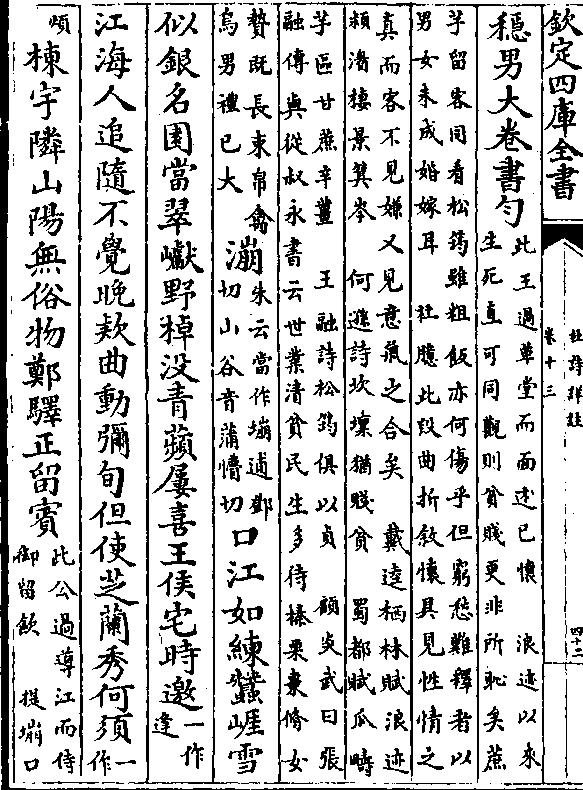 欽定四庫全書
杜詩詳註
卷十三
四十二
穩男大卷書勻
此王過草堂而面述已懷 浪迹以來
生死直可同觀則貧賤更非所恥矣蔗
芋留客同看松筠雖粗飯亦何傷乎但窮愁難釋者以
男女未成婚嫁耳 杜臆此段曲折敘懷具見性情之
真而客不見嫌又見意氣之合矣 戴逵栖林賦浪迹
潁湄棲景箕岑 何遜詩坎壈猶賤貧 蜀都賦瓜疇
芋區甘蔗辛薑 王融詩松筠俱以貞 顧炎武曰張
融傳與從叔永書云世業清貧民生多待榛栗棗脩女
贄既長束帛禽
鳥男禮已大
漰
朱云當作堋逋鄧
切山谷音蒲懵切
口江如練蠶崖雪
似銀名園當翠巘野棹没青蘋屢喜王侯宅時邀
一作
逢
江海人追隨不覺晚欵曲動彌旬但使芝蘭秀何須
一作
煩
棟宇隣山陽無俗物鄭驛正留賓
此公過導江而侍
御留飲 提堋口